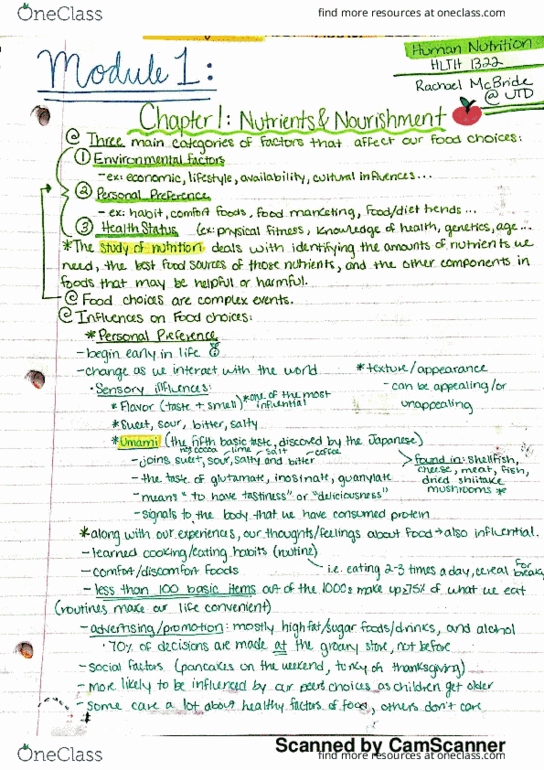 OneClass
find more resources at oneclass.com
Module 1:
Human Nutrition
HLTH 1322
Rachael McBride
@ UTD
Chapter 1: Nutrients & Nourishment
Three main categories of factors that affect our food choices:
① Environmental factors
-ex: economic, lifestyle, availability, cultural influences...
② Personal Preference
-ex: habit, comfort foods, food marketing, food/diet trends...
③ Health Status (ex: physical fitness, knowledge of health, genetics, age...
*The study of nutrition deals with identifying the amounts of nutrients we
need, the best food sources of those nutrients, and the other components in
foods that may be helpful or harmful.
Food choices are complex events.
Influences on Food choices:
*Personal Preference
-begin early in life
-change as we interact with the world
*texture/appearance
-can be appealing/or
unappealing
•Sensory influences:
*Flavor (taste + smell) *one of the most
influential
*Sweet, sour, bitter, salty
*Umami (the fifth basic taste, discoved by the Japanese)
lime salt coffee
-joins sweet, sour, salty and bitter
found in: shellfish,
cheese, meat, fish,
dried shiitake
mushrooms *
-the taste of glutamate, inosinate, guanylate
-means "to have tastiness" or "deliciousness"
-signals to the body that we have consumed protein
*along with our experiences, our thoughts/feelings about food → also influential.
-learned cooking/eating habits (routine)
i.e. eating 2-3 times a day, cereal for
-comfort/discomfort foods
-less than 100 basic items out of the 1000s make up 75% of what we eat
(routines make our life convenient)
-advertising/promotion: mostly high fat/sugar foods/drinks, and alcohol
•70% of decisions are made at the grocery store, not before
-social factors (pancakes on the weekend, turkey on thanksgiving)
-more likely to be influenced by our peers choices as children get older
-some care a lot about healthy factors of food, others don't care
Scanned by CamScanner
OneClass
find more resources at oneclass.com